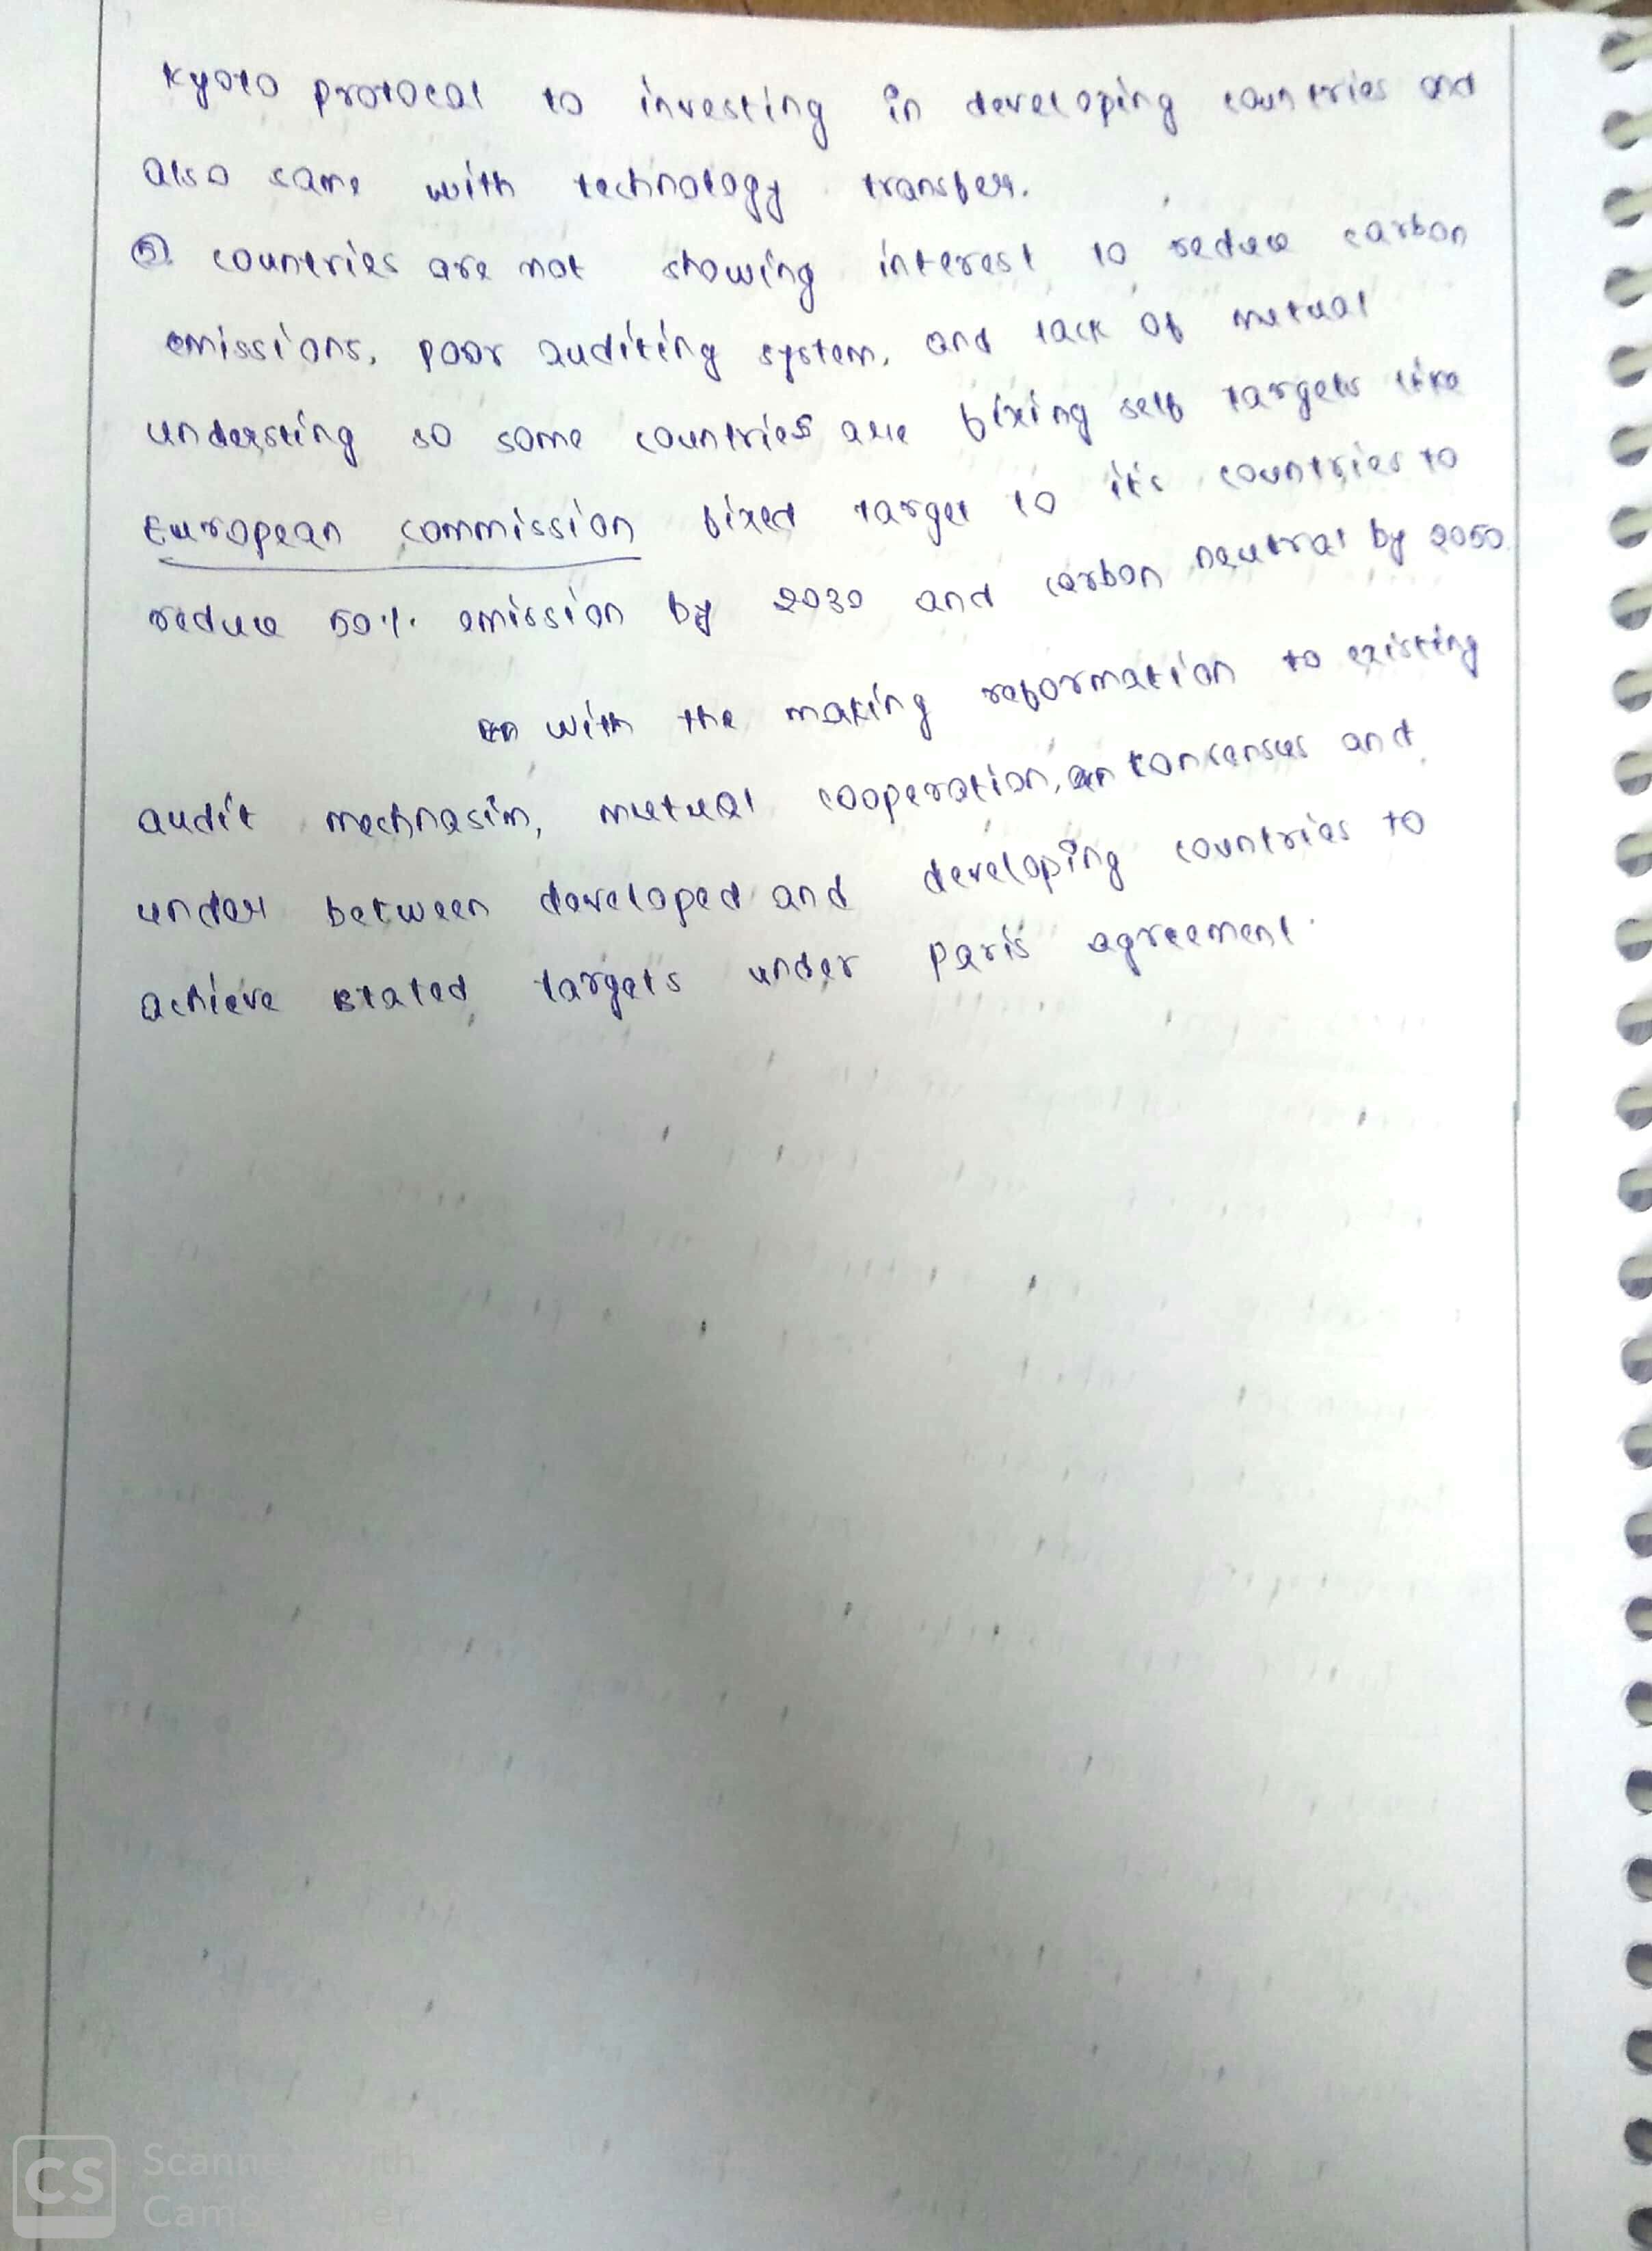 Kyoto protocal to investing in developing countries and
also same with technology transfer.
⑤ countries are not showing interest to reduce carbon
emissions, poor auditing system, and lack of mutual
understing so some countries are fixing self targets like
European commission fixed target to it's countries to
reduce 50% emission by 2030 and carbon neutral by 2050.
with the making reformation to existing
audit mechnasim, mutual cooperation, consensus and
under between developed and developing countries to
achieve stated targets under paris agreement.
CS Scanned with
CamScanner